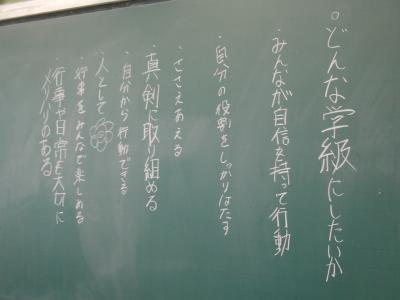 ○どんな学級にしたいか
・みんなが自信を持って行動
・自分の役割をしっかりはたす
・ささえあえる
・真剣に取り組める
・自分から行動できる
・人として
・行事をみんなで楽しめる
・行事や日常を大切に
メリハリのある